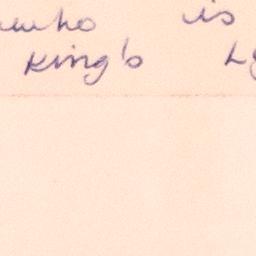 who is
King's